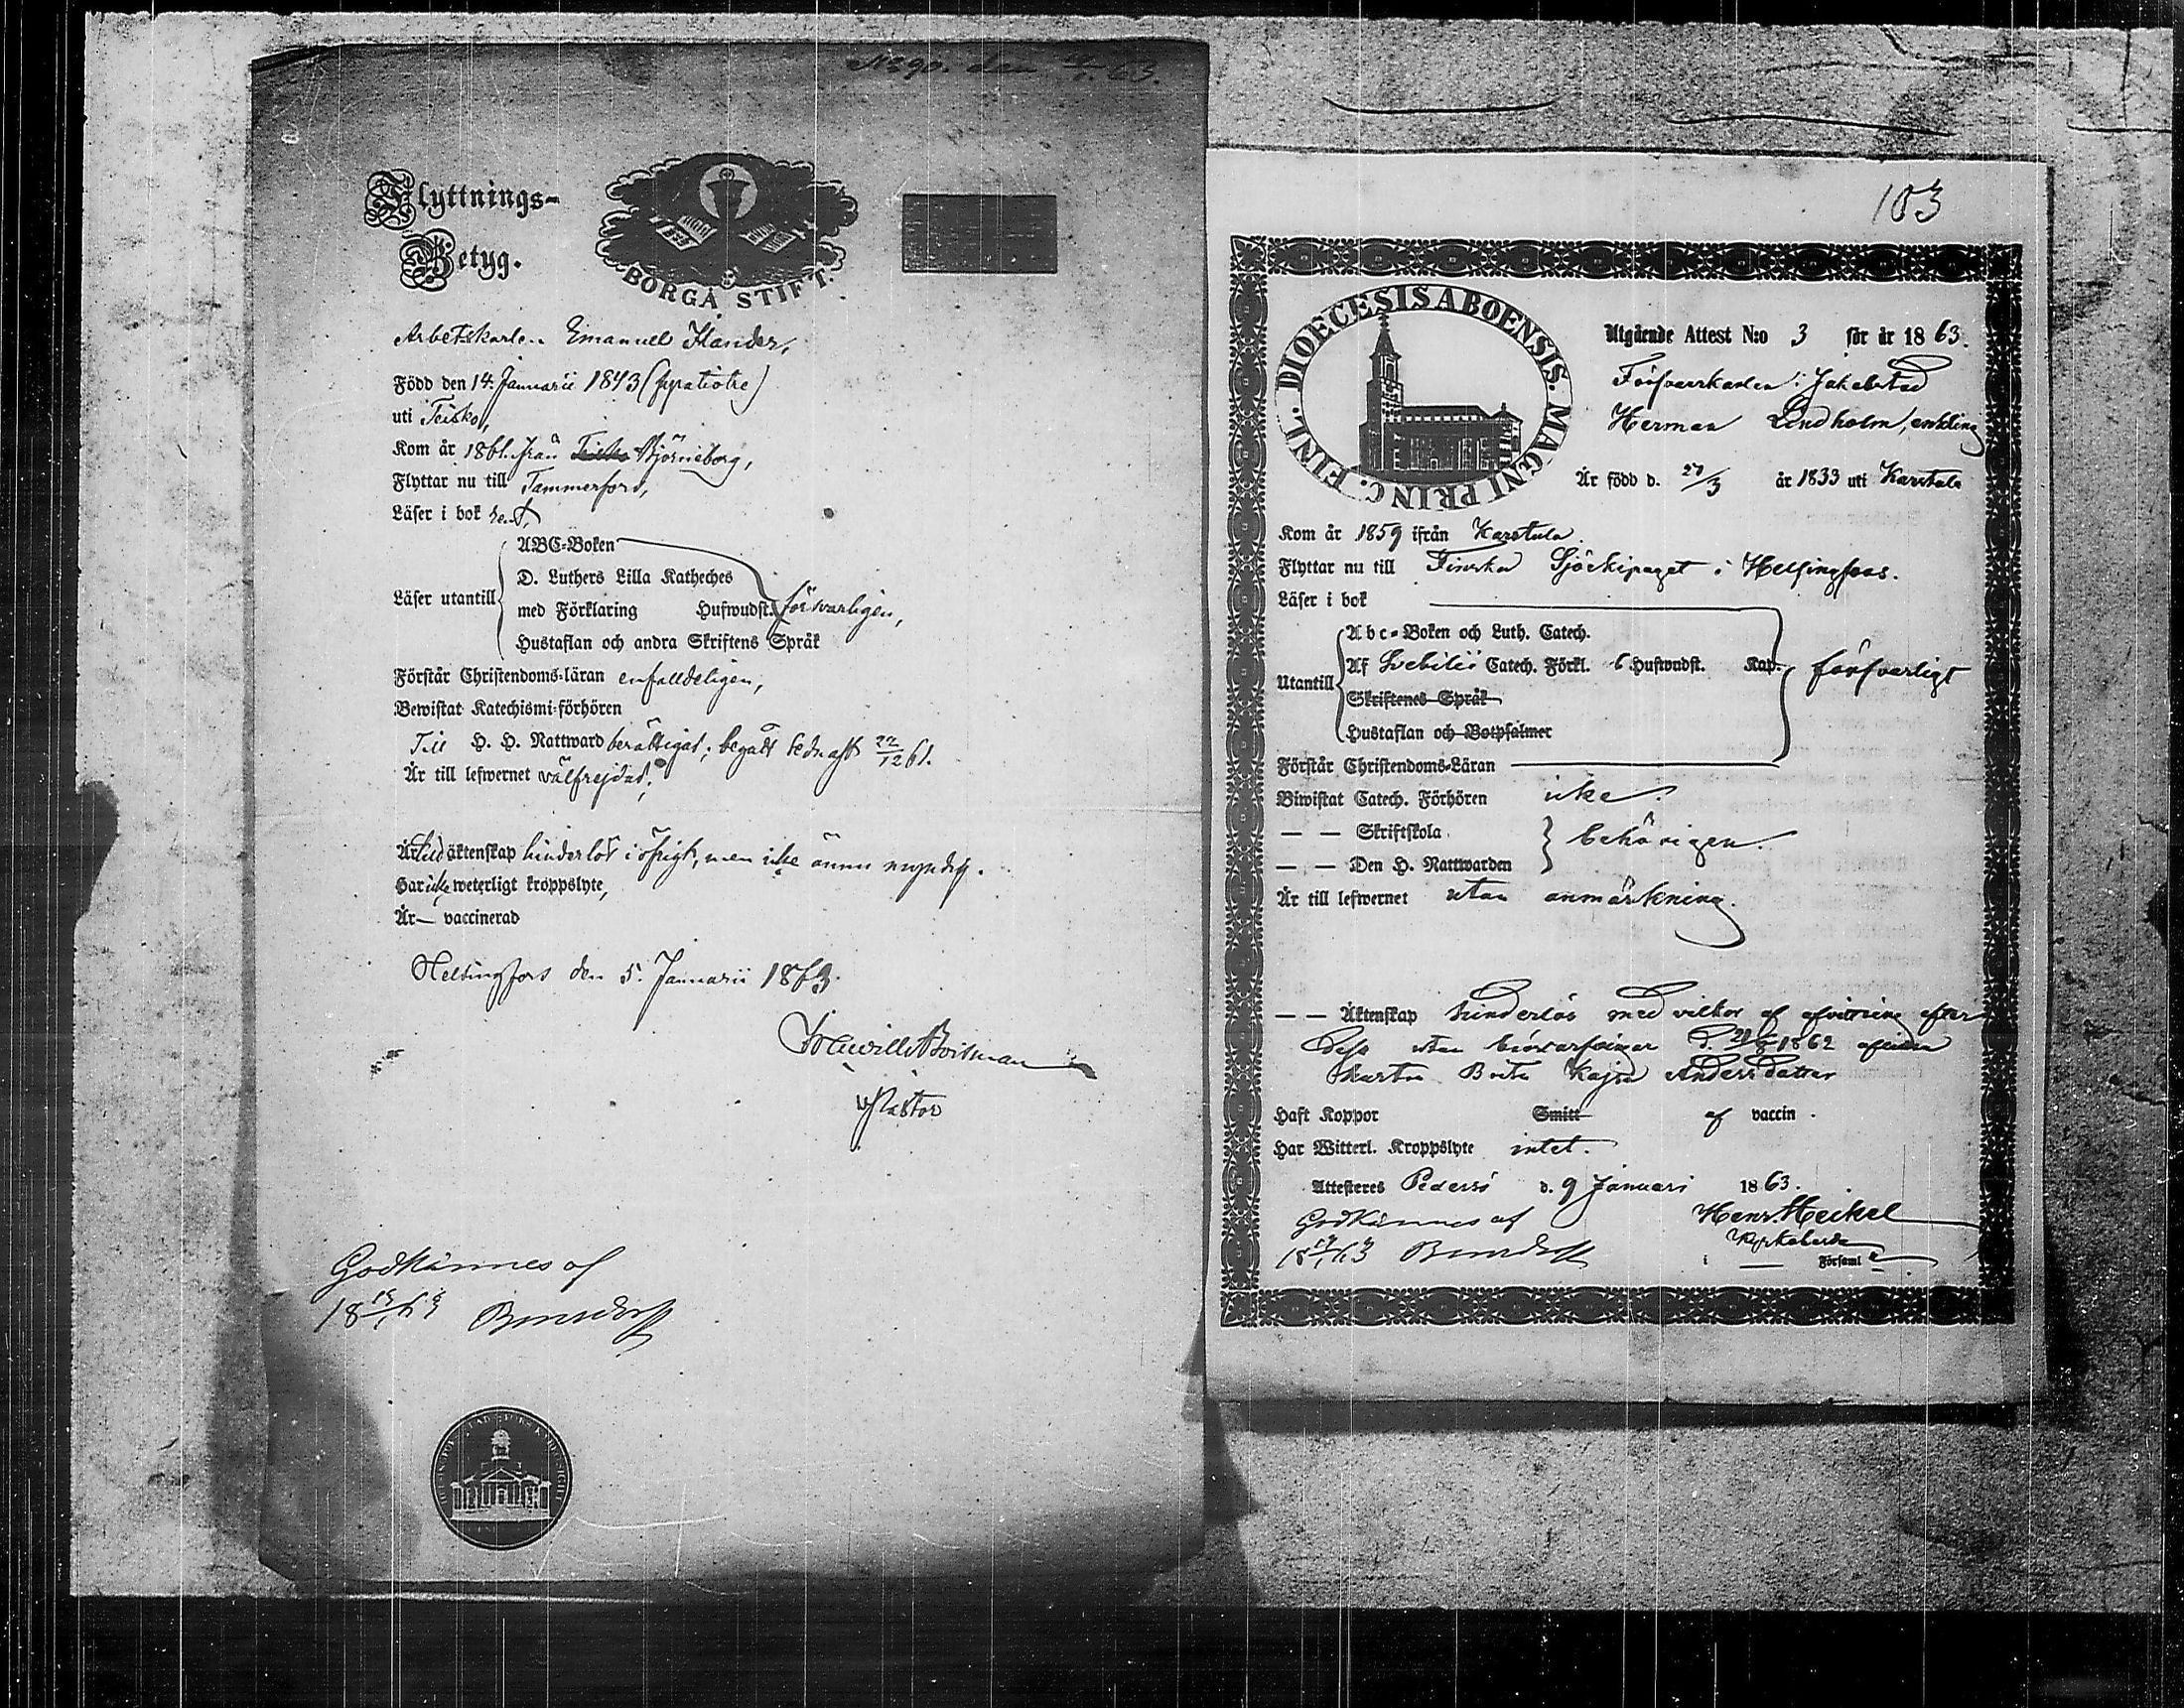 No 90. den 63.
Flyttnings-
Betyg.
BORGÅ STIFT.
Arbetskarlen Emanuel
Född den 14. Januarii 1843
uti Teisko,
Kom år 1861. från Teisko Björneborg,
Flyttar nu till Tammerfors,
Läser i bok rent,
Läser utantill
ABC-Boken
D. Luthers Lilla Katheches
med Förklaring Hufwudst. försvarligen,
Hustaflan och andra Skriftens Språk
Förstår Christendoms-läran enfalldeligen,
Bewistat Katechismi-förhören
Till H. H. Nattward berättigad; begått sednast 22/12 61.
Är till lefwernet välfrejdad;
Är till äktenskap hinderlös i öfrigt, men icke ännu myndig.
Har icke weterligt kroppslyte,
Är — vaccinerad
Helsingfors den 5. Januarii 1863.
v Pastor
Godkännes af
18 13/1 63
103
DIOECESIS ABOENSIS. MAGNI PRINC. FINL.
Utgående Attest N:o 3 för år 1863.
Försvarskarlen i Jakobstad
Herman Lindholm, enkling
Är född d. 27/3 år 1833 uti Karstula
Kom år 1859 ifrån Karstula
Flyttar nu till Finska Sjöekipaget i Helsingfors.
Läser i bok
Utantill
Abc-Boken och Luth. Catech.
Af Svebilii Catech. Förkl. 6 Hufwudst. Kap.
försvarligt
Skriftenes Språk
Hustaflan och Botpsalmer
Förstår Christendoms-Läran
Biwistat Catech. Förhören icke.
— — Skriftskola
behörigen.
— — Den H. Nattwarden
Är till lefwernet utan anmärkning.
— — Äktenskap hinderlös med vilkor af afvittring efter
dess utan bröstarfvingar d. 1862 aflidna
hustru Brita Kajsa Andersdotter
Haft Koppor Smitt af vaccin.
Har Witterl. Kroppslyte intet.
Attesteres Pedersö d. 9 Januari 1863.
Godkännes af Henr. Heikel
Kyrkoherde
i — Församl